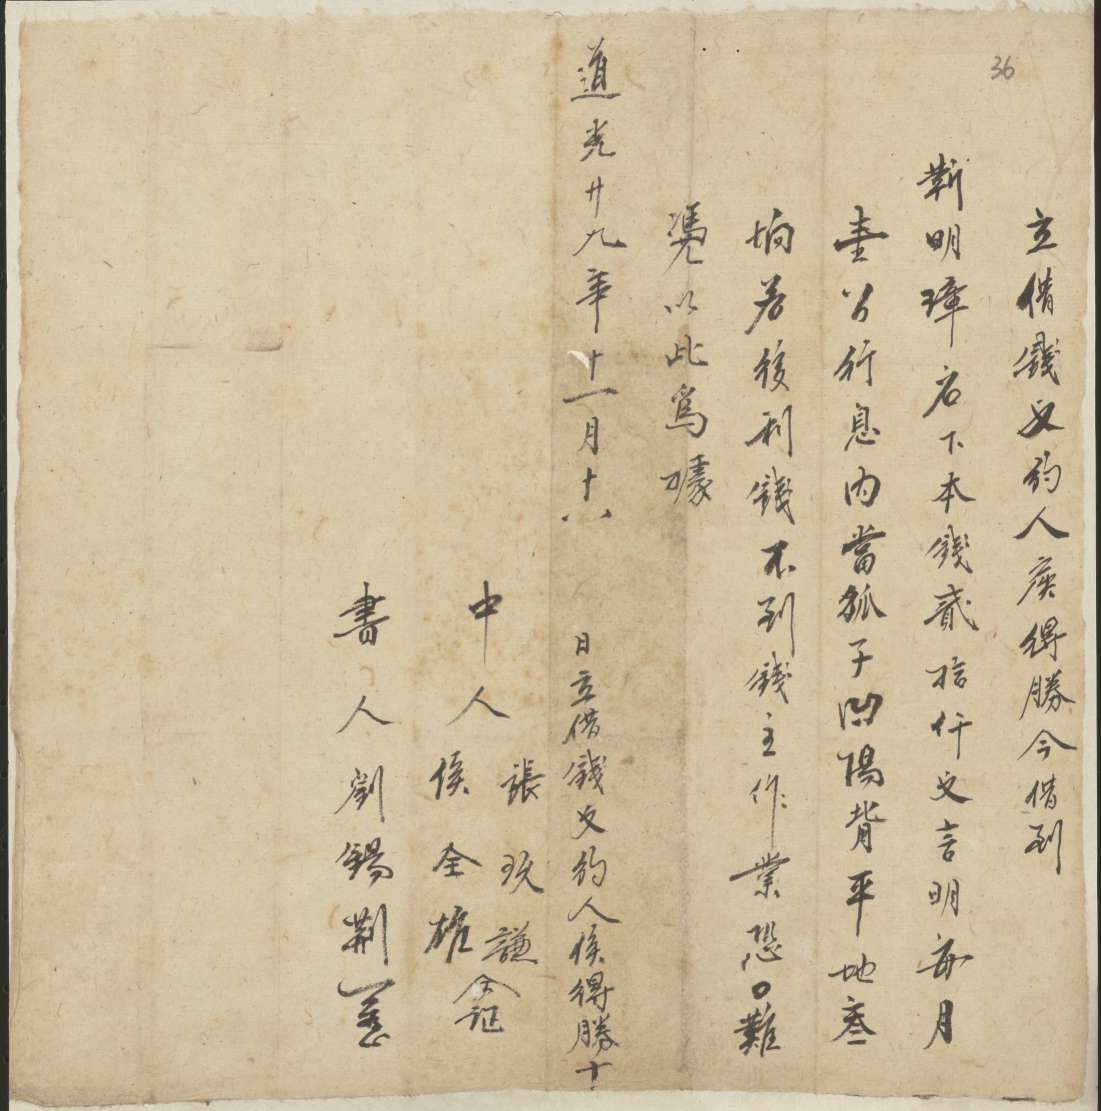 36
立借錢文約人侯得勝今借到
靳明璋名下本錢貳拾仟文言明每月
壹分行息內當狐子凹陽背平地叁
垧若後利錢不到錢主作業恐口難
憑以此為據
道光廿九年十一月十六 日立借錢文約人侯得勝十
中人 張玫謙 侯全雄 仝証
書人劉錫荆